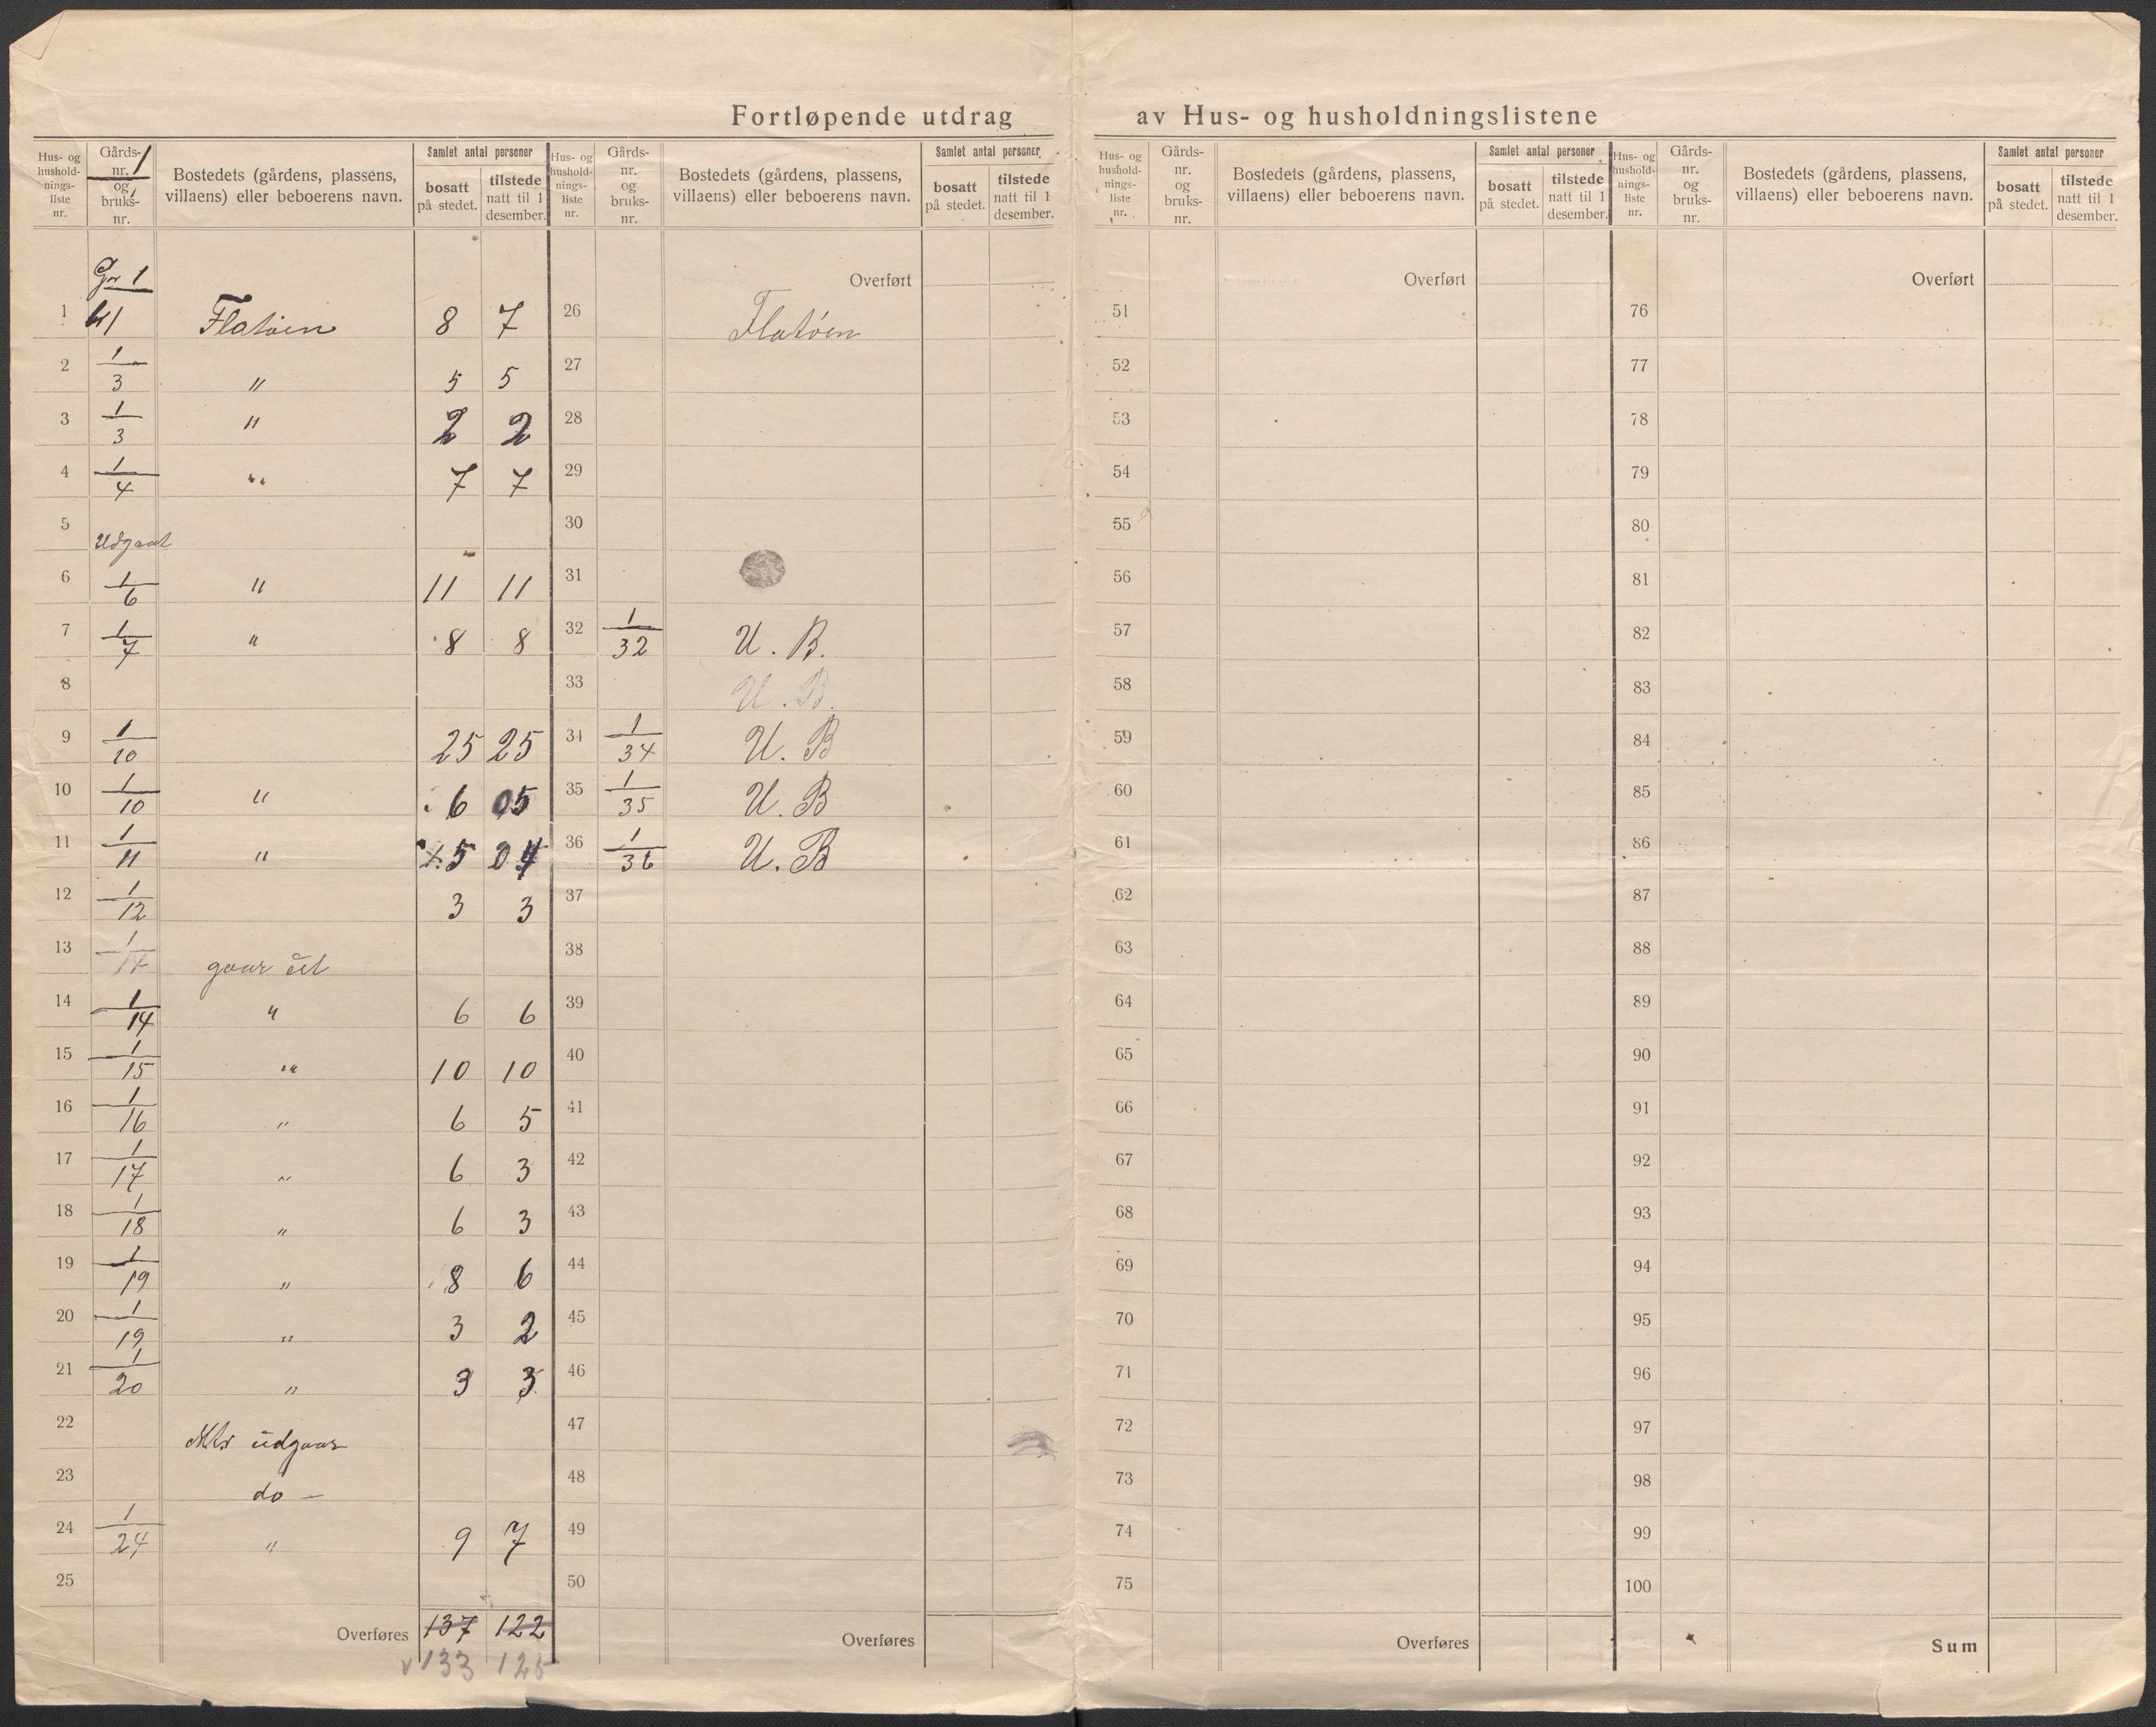 Fortløpende utdrag av Hus- og husholdningslistene
Hus- og hushold-nings-liste nr. Gårds-nr. 1 og bruks-nr. Bostedets (gårdens, plassens, villaens) eller beboerens navn. Samlet antal personer bosatt på stedet. tilstede natt til 1 desember.
Hus- og hushold-nings-liste nr. Gårds-nr. og bruks-nr. Bostedets (gårdens, plassens, villaens) eller beboerens navn. Samlet antal personer bosatt på stedet. tilstede natt til 1 desember.
Hus- og hushold-nings-liste nr. Gårds-nr. og bruks-nr. Bostedets (gårdens, plassens, villaens) eller beboerens navn. Samlet antal personer bosatt på stedet. tilstede natt til 1 desember.
Hus- og hushold-nings-liste nr. Gårds-nr. og bruks-nr. Bostedets (gårdens, plassens, villaens) eller beboerens navn. Samlet antal personer bosatt på stedet. tilstede natt til 1 desember.
Gr 1
1 Flatöen 8 7
2 1/3 " 5 5
3 1/3 " 2 2
4 1/4 " 7 7
5 Udgaat
6 1/6 " 11 11
7 1/7 " 8 8
8
9 1/10 25 25
10 1/10 " 6 05
11 1/11 " 5 04
12 1/12 3 3
13 1/14 gaar ut
14 1/14 " 6 6
15 1/15 " 10 10
16 1/16 " 6 5
17 1/17 " 6 3
18 1/18 " 6 3
19 1/19 " 8 6
20 1/19 " 3 2
21 1/20 " 3 3
22 udgaar
23 do —
24 1/24 " 9 7
25
Overføres 137 122
v 133 125
Overført
26 Flatöen
27
28
29
30
31
32 1/32 U. B.
33 U. B.
34 1/34 U. B
35 1/35 U. B
36 1/36 U. B
37
38
39
40
41
42
43
44
45
46
47
48
49
50
Overføres
Overført
51
52
53
54
55
56
57
58
59
60
61
62
63
64
65
66
67
68
69
70
71
72
73
74
75
Overføres
Overført
76
77
78
79
80
81
82
83
84
85
86
87
88
89
90
91
92
93
94
95
96
97
98
99
100
Sum